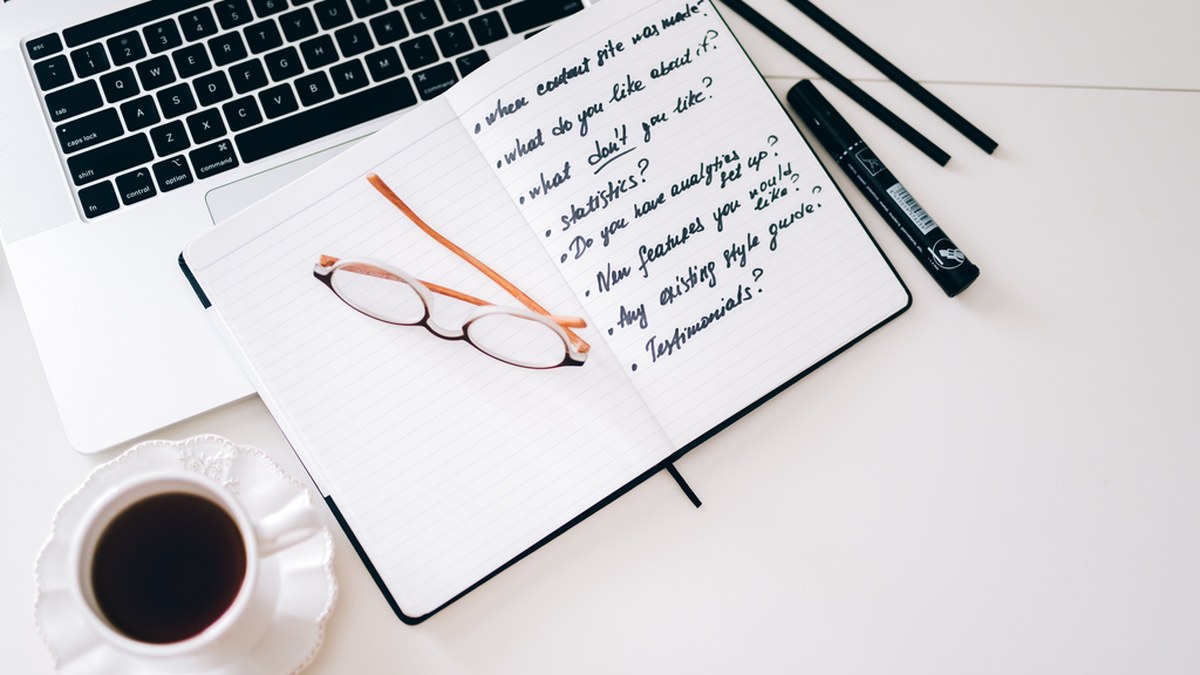 • When content site was made?
• what do you like about it?
• what don't you like?
• statistics?
• Do you have analytics
set up?
• New features you would
like?
• Any existing style guide?
• Testimonials?
esc
1
2
3
4
5
6
7
tab
Q
W
E
R
T
Y
U
I
O
P
caps lock
A
S
D
F
G
H
J
K
L
shift
Z
X
C
V
B
N
M
fn
control
option
command
command